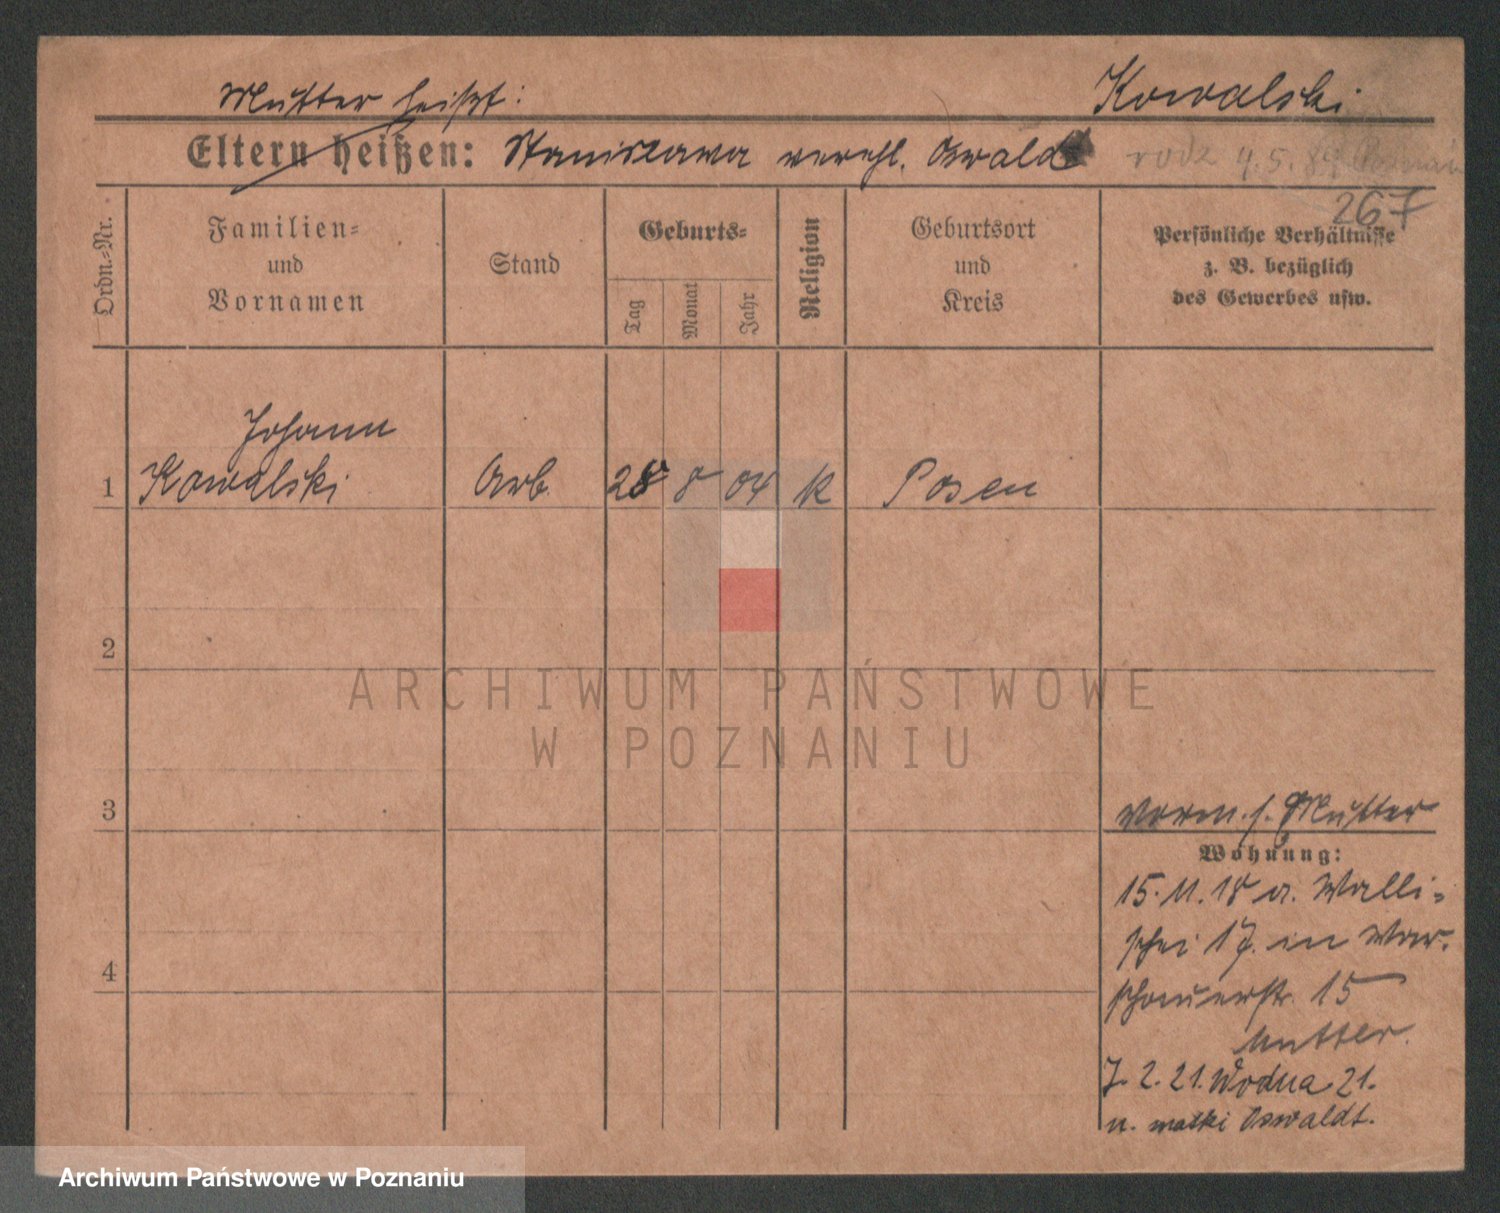 Mutter heißt:
Kowalski
Eltern heißen: Stanislawa verehl. Oswald
rodz 4.5.84 Poznań
267
Ordn.-Nr.
Familien-
und
Vornamen
Stand
Geburts-
Tag
Monat
Jahr
Religion
Geburtsort
und
Kreis
Persönliche Verhältnisse
z. B. bezüglich
des Gewerbes usw.
Johann
1 Kowalski Arb. 28 8 04 K Posen
2
ARCHIWUM PAŃSTWOWE
W POZNANIU
3
Mutter
Wohnung:
15.11.18 a. Walli-
schei 17. in War-
schauerstr. 15
Mutter.
7.2.21. Wodna 21.
u. matki Oswaldt.
4
Archiwum Państwowe w Poznaniu